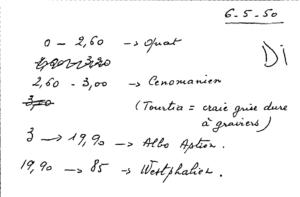 6-5-50
0 - 2,60 → Quat
Di
2,60 - 3,00 → Cenomanien
(Tourtia = craie grise dure
à graviers)
3 → 19,90 → Albo Aptien.
19,90 → 85 → Westphalien.